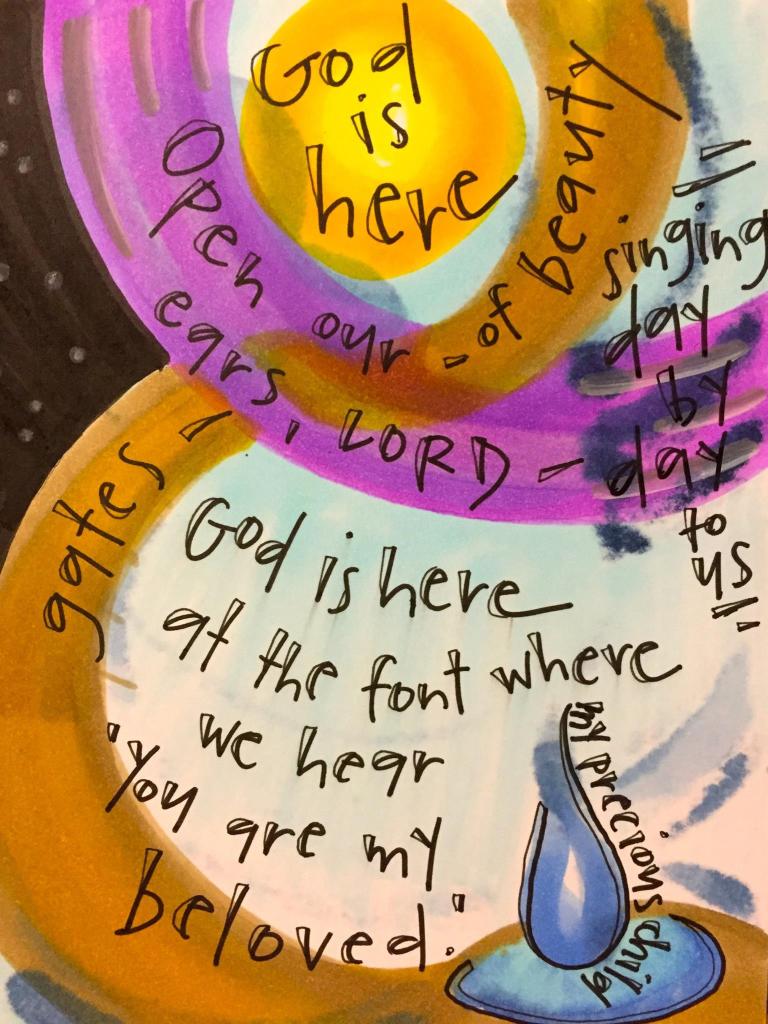 God
is
here
Open our
ears, LORD -
gates -
- of beauty
"singing
day
by
day
to
us"
God is here
at the font where
we hear
"You are my
beloved."
my precious child